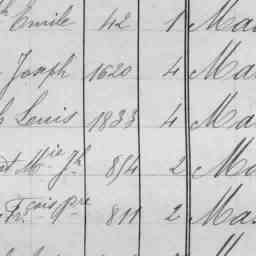 Emile 42 1 Ma
Joseph 1620 4 Ma
Louis 1833 4 Ma
Mie Jh 854 2 Ma
Frçois pre 811 2 Ma